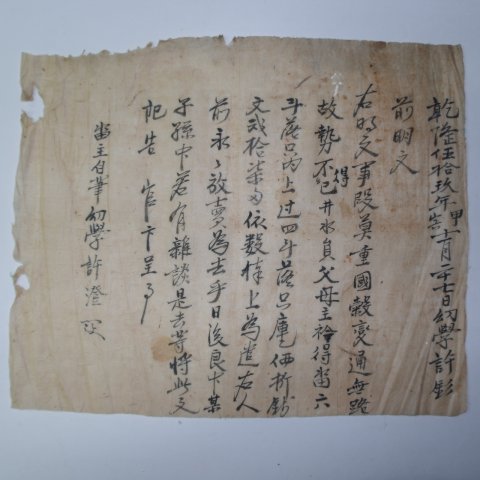 乾隆伍拾玖年甲寅十二月二十七日幼學許
前明文
右明文事段莫重國穀變通無路
故勢不得已井水員父母主衿得畓六
斗落只內上边四斗落只庫価折錢
文貳拾柒兩依數捧上為遣右人
前永〃放賣為去乎日後良中某
子孫中若有雜談是去等將此文
記告官卞呈事
畓主自筆幼學許澄